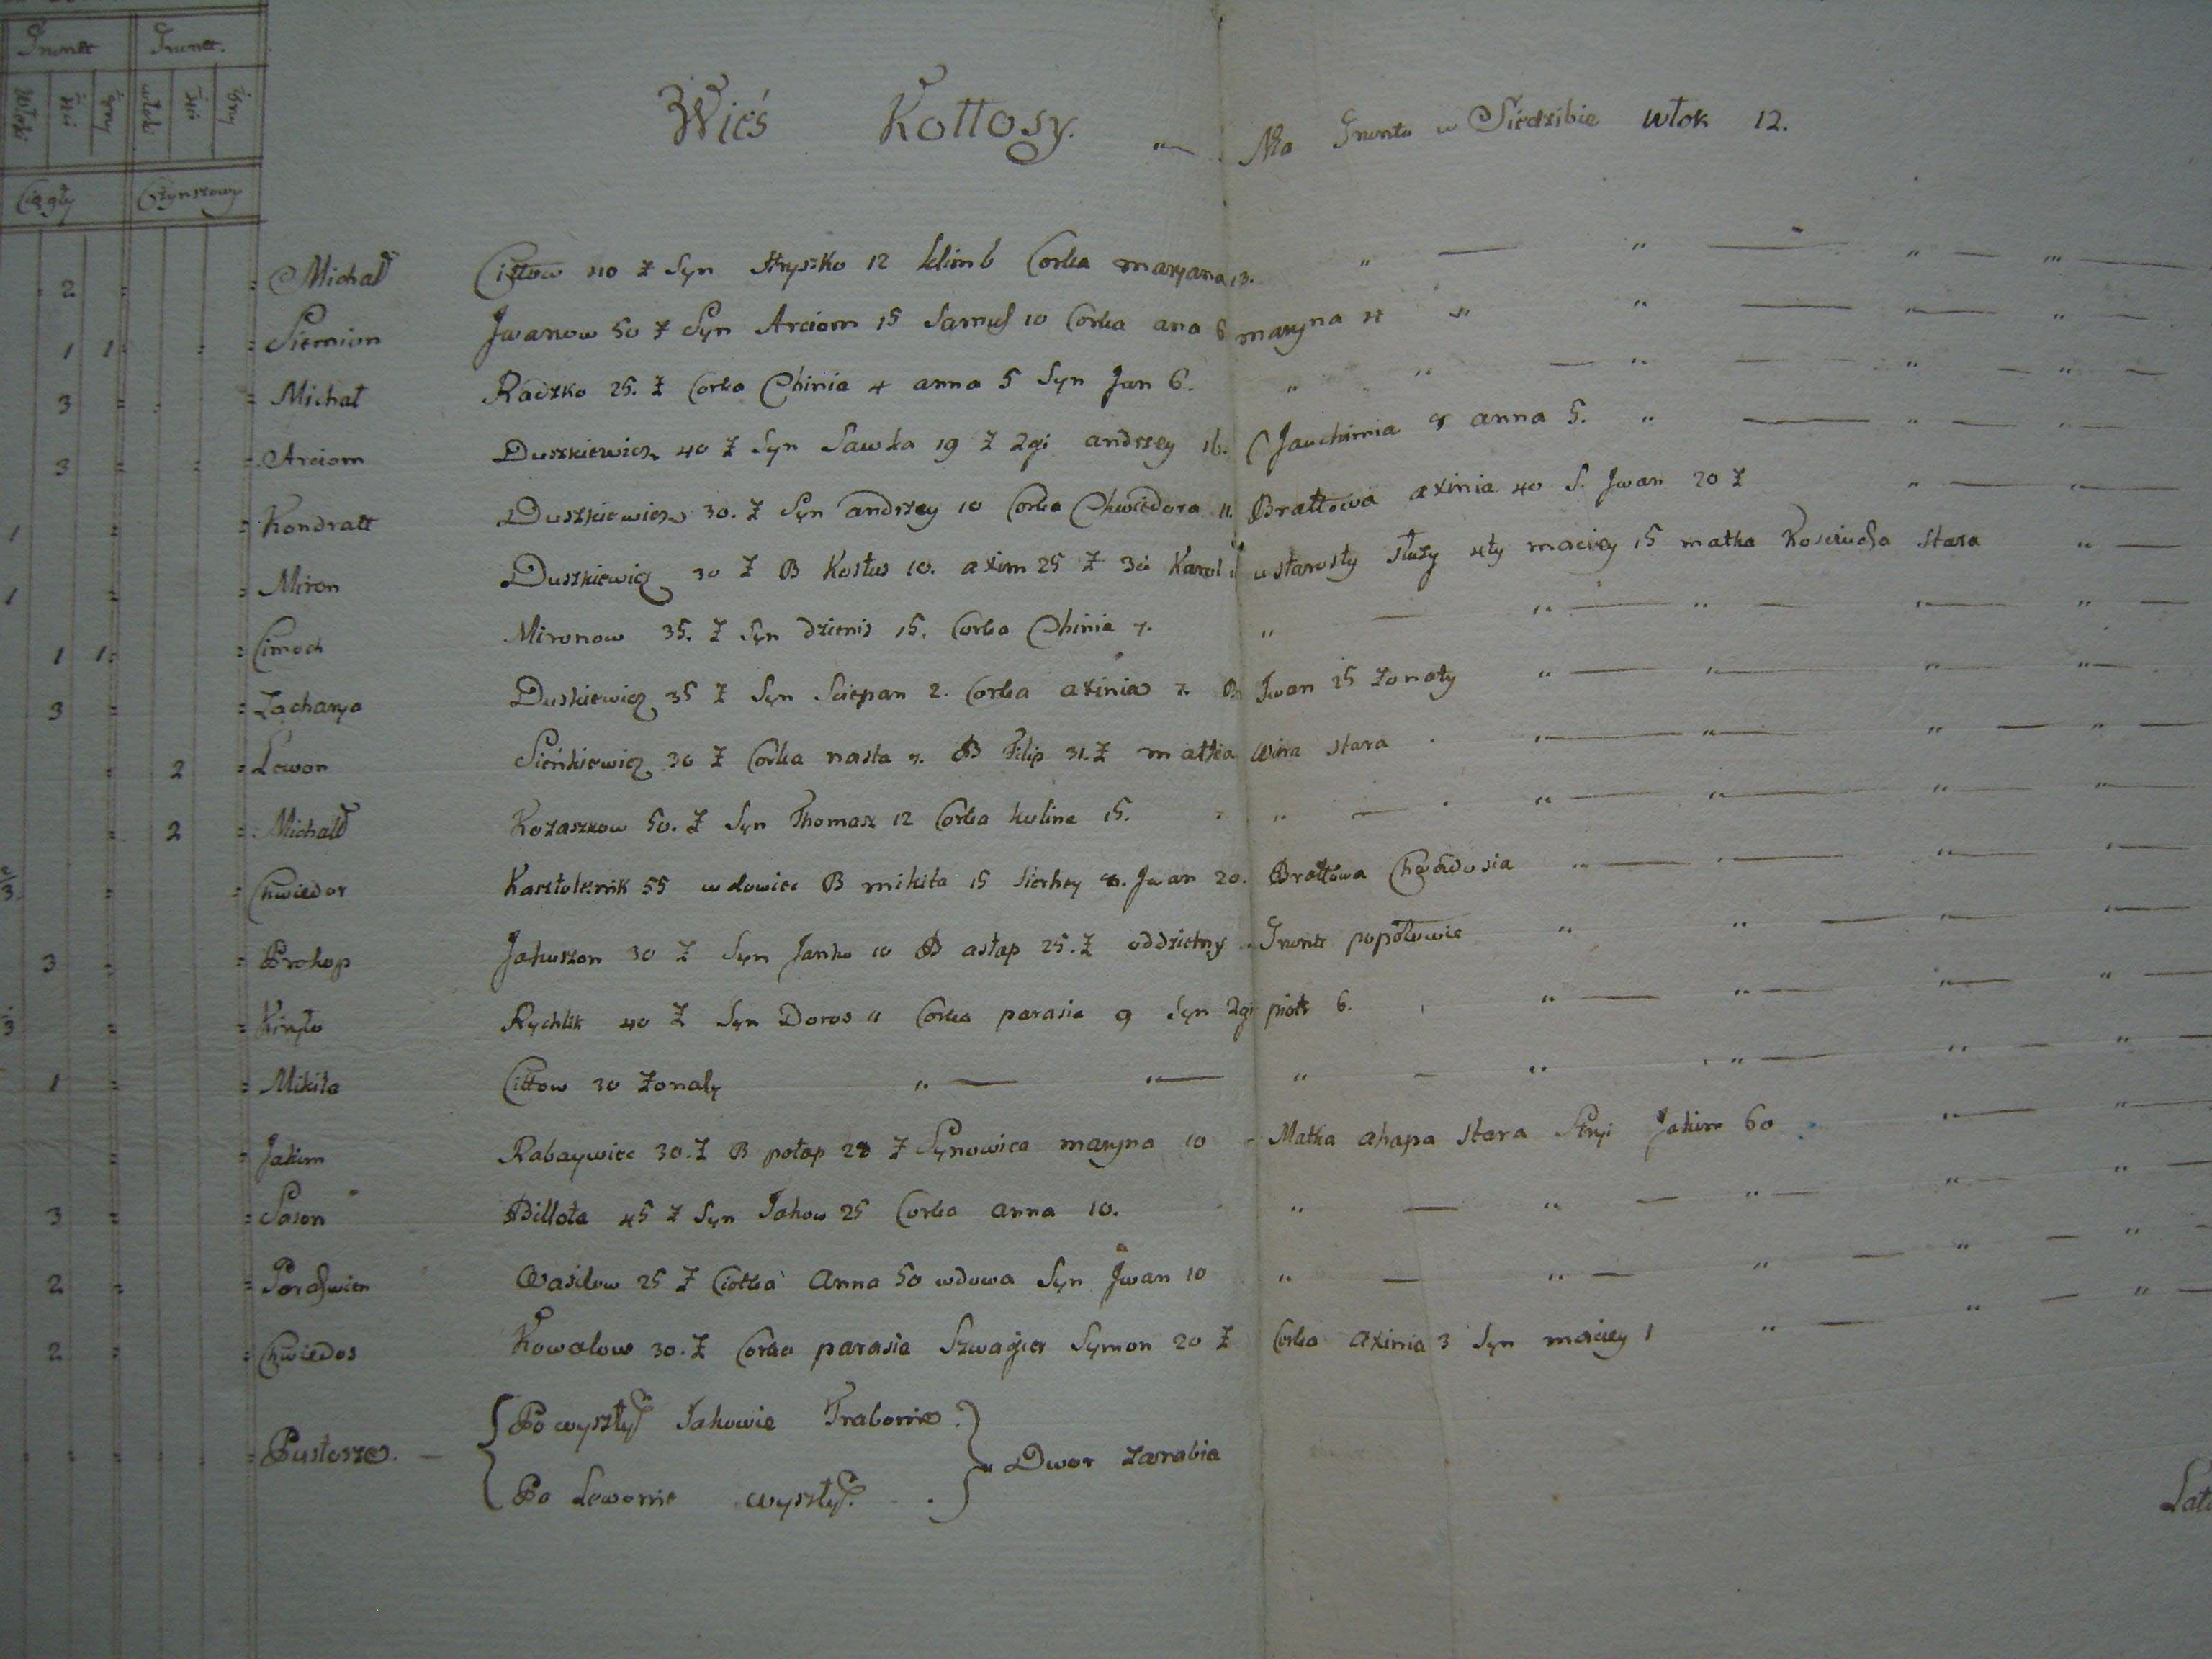 Grunta Grunta.
Włoki 3cie 6ny włoki 3cie 6ny
Ciągły Czynszowy
Wieś Kottosy. „— Ma Gruntu w Siedzibie włok 12.
2 = = Michał Cittow 40 Ż Syn Hryszko 12 klimb Corka maryana 13. „ — „ — „ — „ —
1 1 = = Siemion Jwanow 50 Ż Syn Arciom 15 Samus 10 Corka ana 6 maryna 4 „ „ — „ — „ —
3 = = Michał Radzko 25. Ż Corka Chinia 4 anna 5 Syn Jan 6. „ „ — „ — „ — „ —
3 = = Arciom Duszkiewicz 40 Ż Syn Sawka 19 Ż 2gi andrzey 16. C Jauchimia 9 anna 5. „ — „ — „ —
1 = = Kondratt Duszkiewicz 30. Ż Syn andrzey 10 Corka Chwiedora 11. Brattowa axinia 40 S. Jwan 20 Ż „ — „ —
1 = = Miron Duszkiewicz 30 Ż B Kostus 10. axim 25 Ż 3ci Karol u starosty służy 4ty maciey 15 matka Kosciucha stara „ —
1 1 = = Cimoch Mironow 35. Ż Syn dzienis 15. Corka Chinia 7. „ — „ — „ — „ — „ —
3 = = Zacharya Duskiewicz 35 Ż Syn Sciepan 2. Corka axinia 7. B Jwan 25 żonaty „ — „ — „ — „ —
= 2 = Lewon Sieńkiewicz 30 Ż Corka nasta 7. B Filip 31. Ż matka wira stara . „ — „ — „ — „ —
= 2 = Michał Kozaszkow 50. Ż Syn Thomasz 12 Corka kulina 15. „ — „ — „ — „ — „ —
= = Chwiedor Kasztolernik 55 wdowiec B mikita 15 Sierhey 8. Jwan 20. Brattowa Chwadosia „ — „ — „ — „ —
3 = = Prokop Jakuszon 30 Ż Syn Janko 10 B astap 25. Ż oddzielny. Grunta popołowie „ „ — „ — „ —
3 = = Kiryło Rychlik 40 Ż Syn Doros 11 Corka parasia 9 Syn 2gi piotr 6. „ — „ — „ — „ —
1 = = Mikita Cittow 30 żonaty „ — „ — „ — „ „ — „ — „ —
= = Jakim Rabaywicc 30. Ż B potap 28 Ż Synowica maryna 10 - Matka ahapa stara Stryi Jakim 60 „ — „ —
3 = = Sason Billota 45 Ż Syn Jakow 25 Corka anna 10. „ — „ — „ — „ — „ —
2 = = Parchwien Wasilow 25 Ż Ciotka Anna 50 wdowa Syn Jwan 10 „ — „ — „ — „ — „ —
2 = = Chwiedos Kowalow 30. Ż Corka parasia Szwagier Symon 20 Ż Corka axinia 3 Syn maciey 1 „ — „ — „ —
= Pustosze. — Po wyszłym Jakowie Traborne.
Po Lewonie wyszłym. „ Dwor zarabia